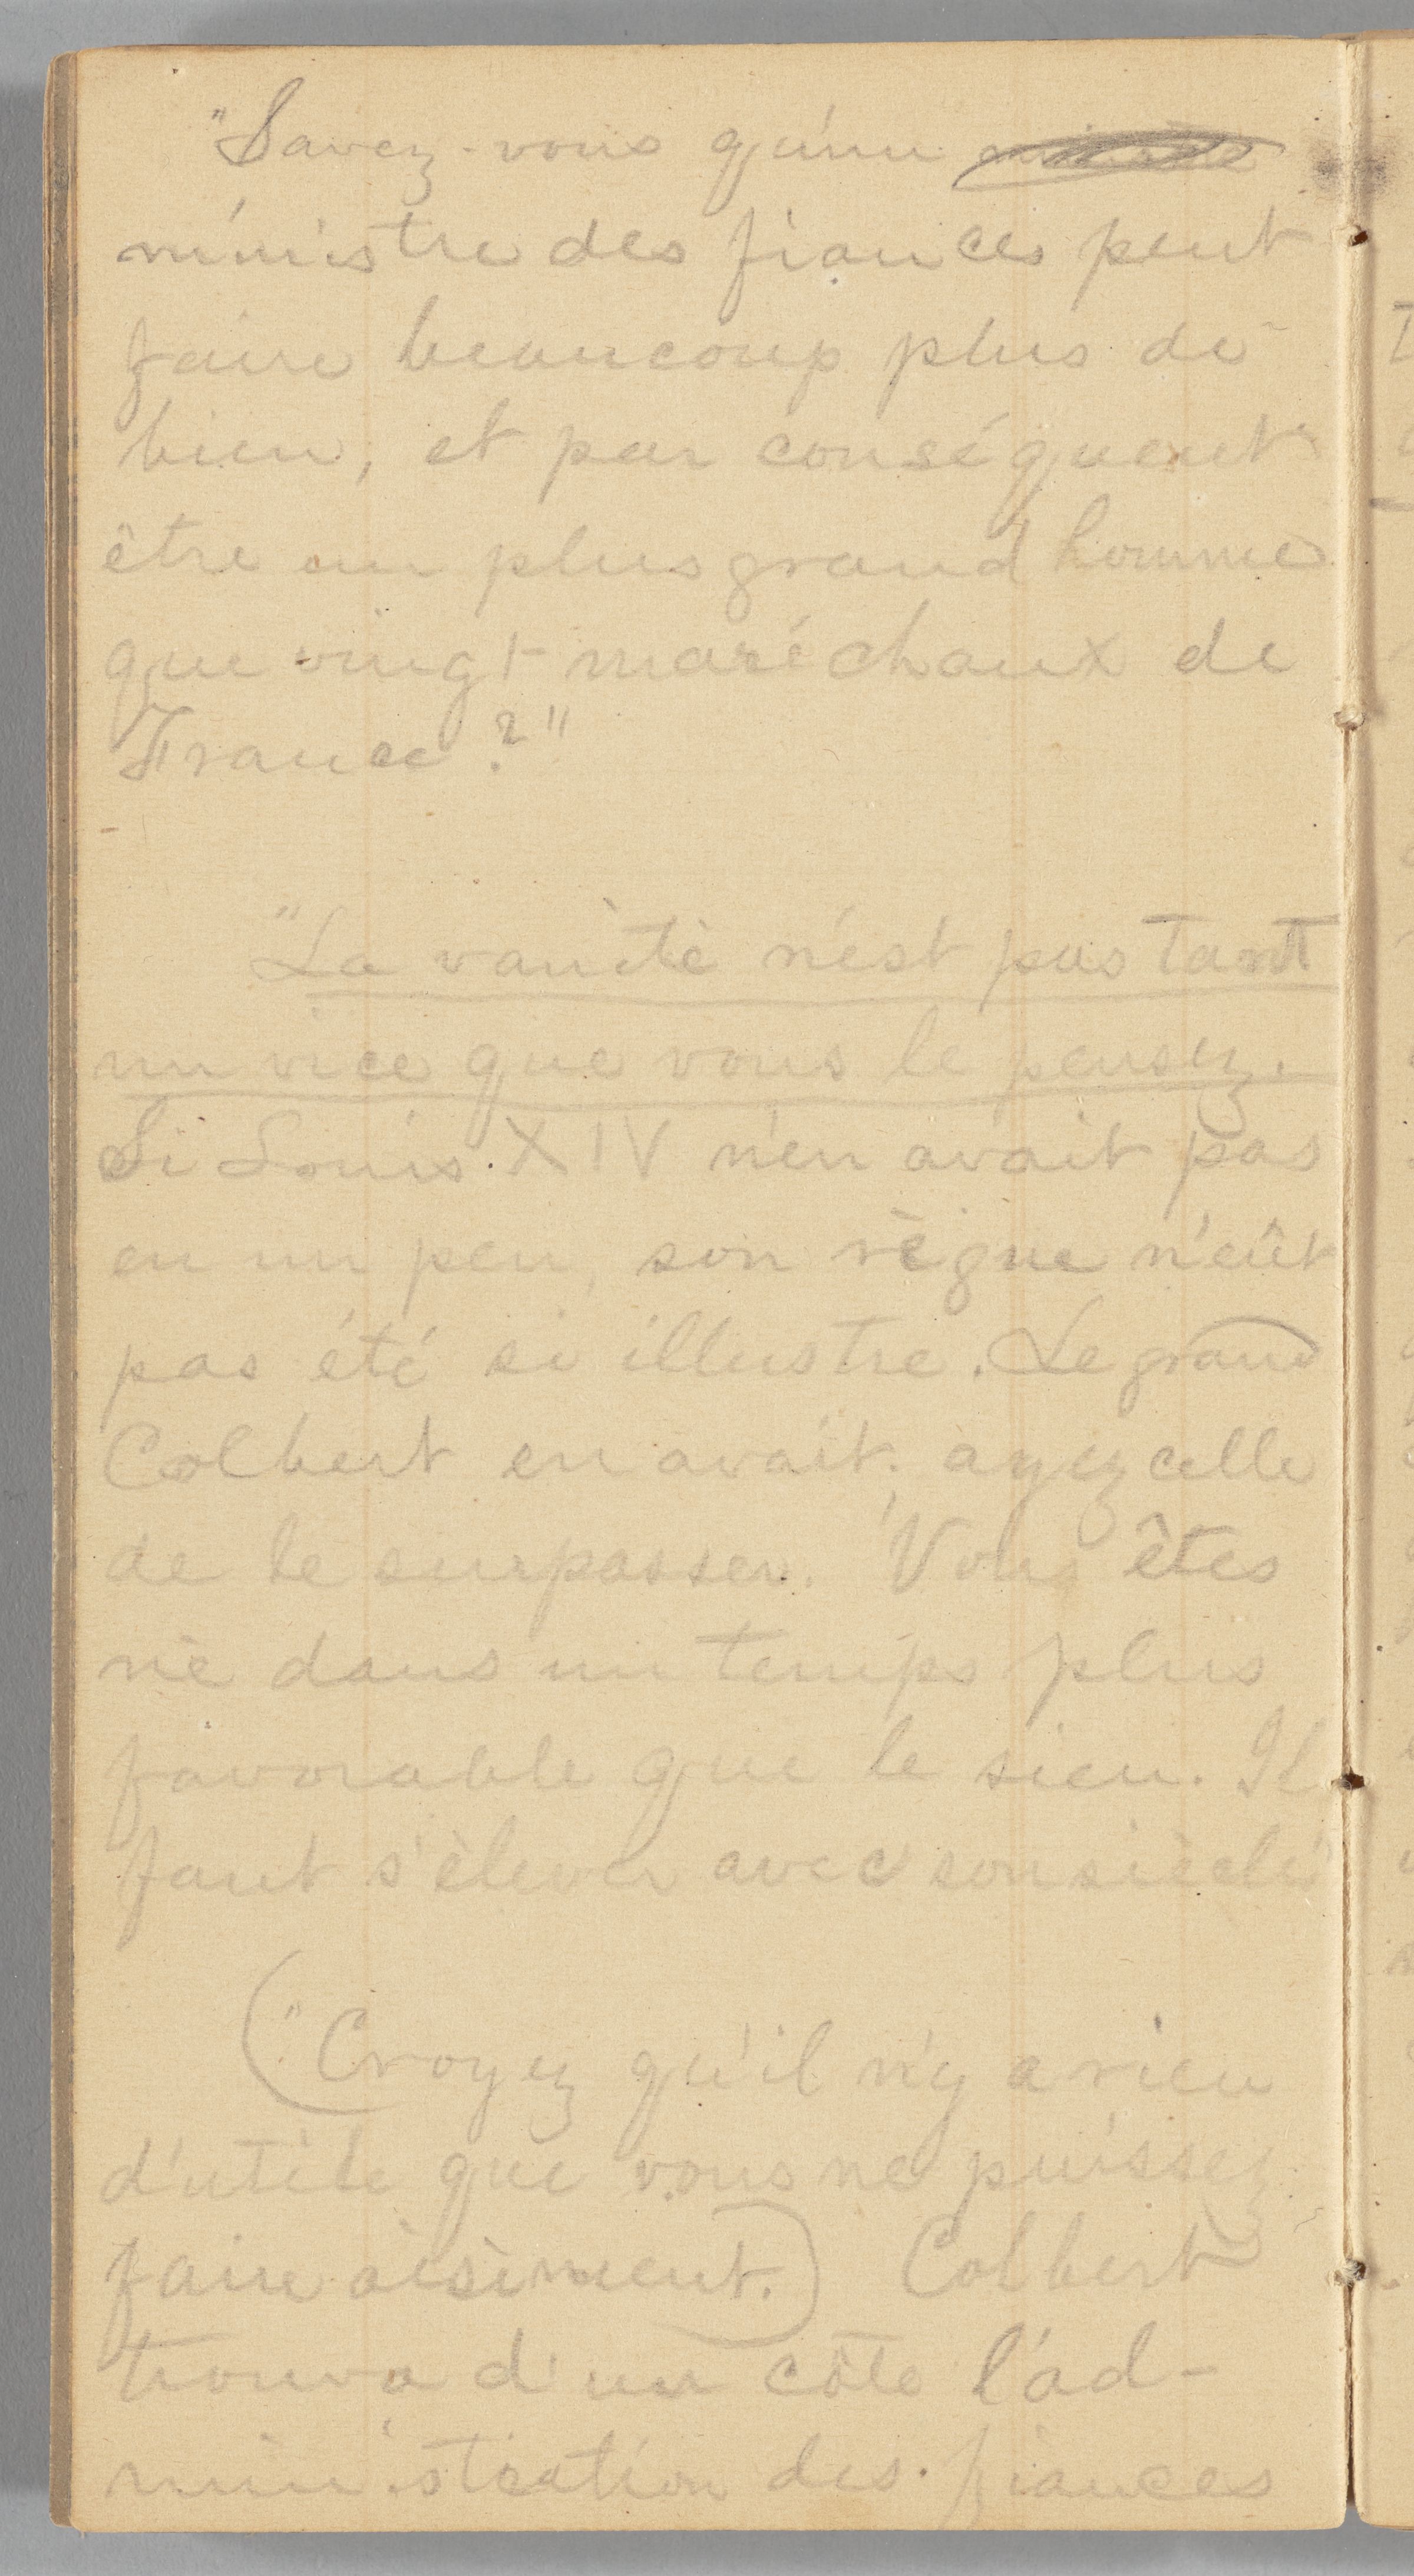 "Savez-vous qu'un
ministre des fiances peut
faire beaucoup plus de
bien, et par conséquent
être un plus grand homme
que vingt maréchaux de
France?"
"La vanité n'est pas tant
un vice que vous le pensez.
Si Louis XIV n'en avait pas
eu un peu, son règne n'eût
pas été si illustre. Le grand
Colbert en avait; ayez celle
de le surpasser. Vous êtes
né dans un temps plus
favorable que le sien. Il
faut s'élever avec son siècle"
("Croyez qu'il n'y a rien
d'utile que vous ne puissez
faire aisèment.) Colbert
trouva d'un côté l'ad-
ministration des fiances